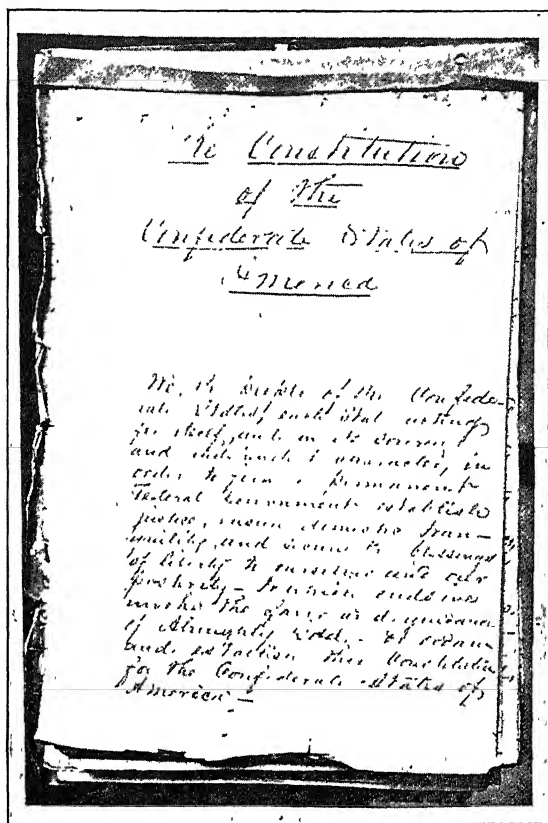 The Constitution
of the
Confederate States of
America
We, the People of the Confede-
rate States, each State acting
for itself, and in its sovereign
and independent character, in
order to form a permanent
Federal Government, establish
justice, insure domestic tran-
quility, and secure the blessings
of liberty to ourselves and our
posterity — to which ends we
invoke the favor and guidance
of Almighty God, — do ordain
and establish this Constitution
for the Confederate States of
America —